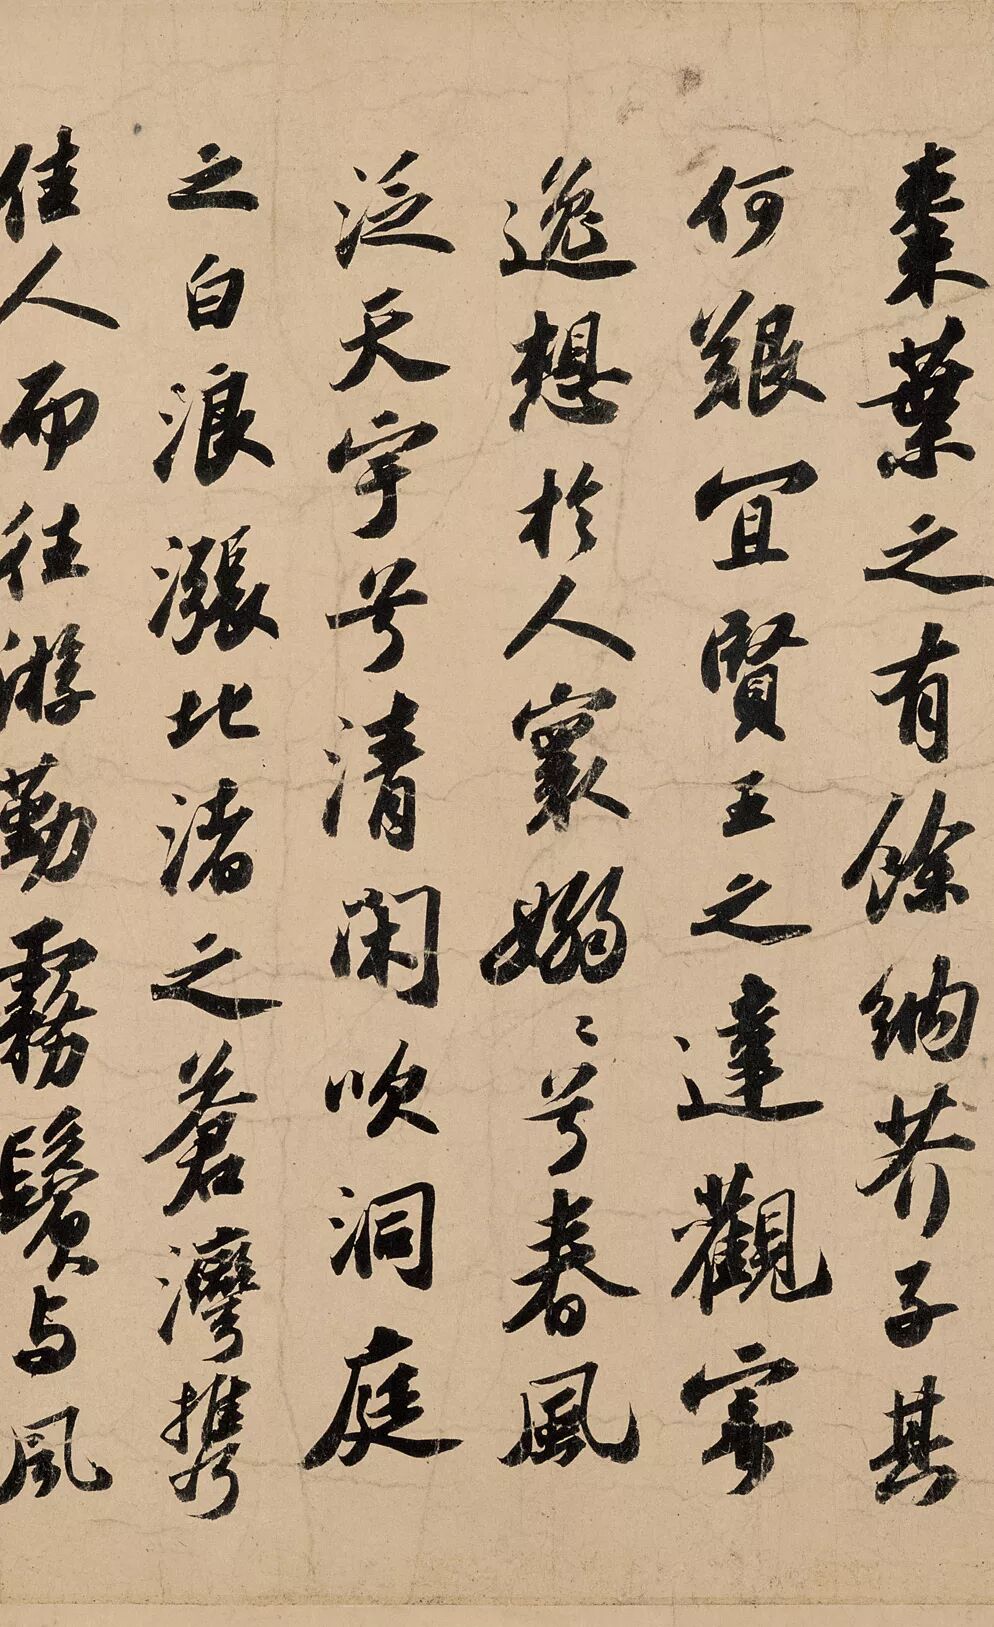 棗葉之有餘納芥子其
何艱宜賢王之達觀寄
逸想於人寰嫋〻兮春風
泛天宇兮清閑吹洞庭
之白浪漲北渚之蒼灣攜
佳人而往游勤霧鬢与風